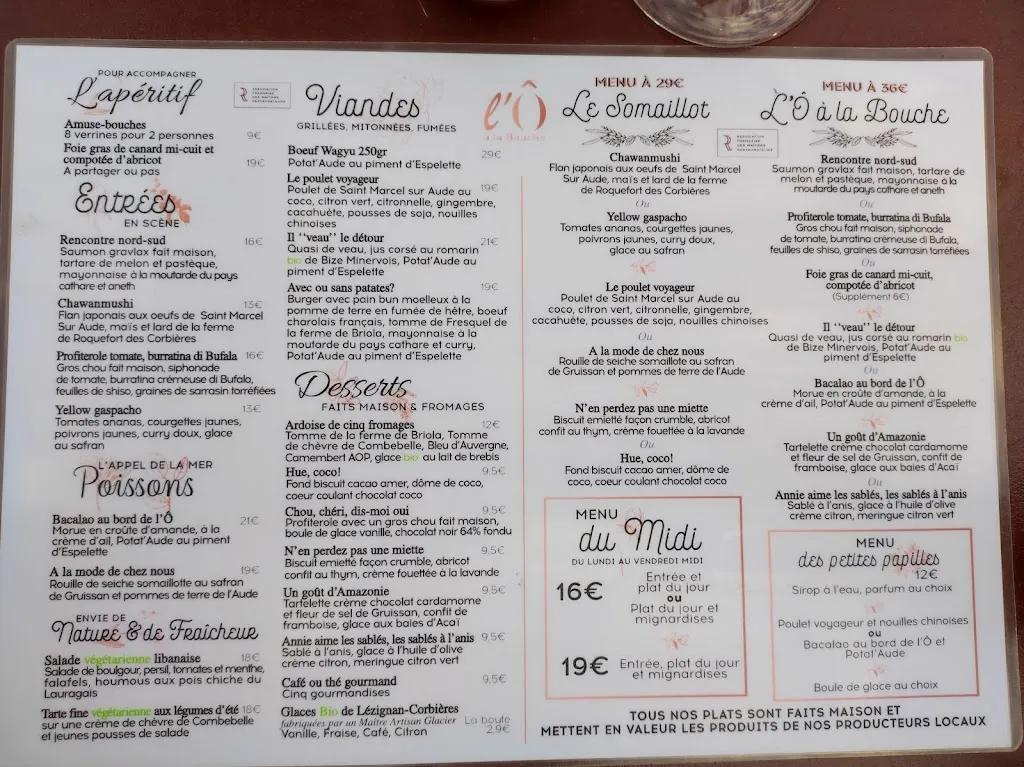 POUR ACCOMPAGNER
L'apéritif
Amuse-bouches
8 verrines pour 2 personnes 9€
Foie gras de canard mi-cuit et
compotée d'abricot 19€
A partager ou pas
Entrées
EN SCÈNE
Rencontre nord-sud 16€
Saumon gravlax fait maison,
tartare de melon et pastèque,
mayonnaise à la moutarde du pays
cathare et aneth
Chawanmushi 13€
Flan japonais aux oeufs de Saint Marcel
Sur Aude, maïs et lard de la ferme
de Roquefort des Corbières
Profiterole tomate, burratina di Bufala 16€
Gros chou fait maison, siphonade
de tomate, burratina crémeuse di Bufala,
feuilles de shiso, graines de sarrasin torréfiées
Yellow gaspacho 13€
Tomates ananas, courgettes jaunes,
poivrons jaunes, curry doux, glace
au safran
L'APPEL DE LA MER
Poissons
Bacalao au bord de l'Ô 21€
Morue en croûte d'amande, à la
crème d'ail, Potat'Aude au piment
d'Espelette
A la mode de chez nous 19€
Rouille de seiche somaillotte au safran
de Gruissan et pommes de terre de l'Aude
ENVIE DE
Nature & de Fraîcheur
Salade végétarienne libanaise 18€
Salade de boulgour, persil, tomates et menthe,
falafels, houmous aux pois chiche du
Lauragais
Tarte fine végétarienne aux légumes d'été 18€
sur une crème de chèvre de Combebelle
et jeunes pousses de salade
R ASSOCIATION
FRANÇAISE
DES MAÎTRES
RESTAURATEURS
Viandes
GRILLÉES, MITONNÉES, FUMÉES
Boeuf Wagyu 250gr 29€
Potat'Aude au piment d'Espelette
Le poulet voyageur 19€
Poulet de Saint Marcel sur Aude au
coco, citron vert, citronnelle, gingembre,
cacahuète, pousses de soja, nouilles
chinoises
Il ''veau'' le détour 21€
Quasi de veau, jus corsé au romarin
bio de Bize Minervois, Potat'Aude au
piment d'Espelette
Avec ou sans patates? 19€
Burger avec pain bun moelleux à la
pomme de terre en fumée de hêtre, boeuf
charolais français, tomme de Fresquel de
la ferme de Briola, mayonnaise à la
moutarde du pays cathare et curry,
Potat'Aude au piment d'Espelette
Desserts
FAITS MAISON & FROMAGES
Ardoise de cinq fromages 12€
Tomme de la ferme de Briola, Tomme
de chèvre de Combebelle, Bleu d'Auvergne,
Camembert AOP, glace bio au lait de brebis
Hue, coco! 9.5€
Fond biscuit cacao amer, dôme de coco,
coeur coulant chocolat coco
Chou, chéri, dis-moi oui 9.5€
Profiterole avec un gros chou fait maison,
boule de glace vanille, chocolat noir 64% fondu
N'en perdez pas une miette 9.5€
Biscuit emietté façon crumble, abricot
confit au thym, crème fouettée à la lavande
Un goût d'Amazonie 9.5€
Tartelette crème chocolat cardamome
et fleur de sel de Gruissan, confit de
framboise, glace aux baies d'Acaï
Annie aime les sablés, les sablés à l'anis 9.5€
Sablé à l'anis, glace à l'huile d'olive
crème citron, meringue citron vert
Café ou thé gourmand 9.5€
Cinq gourmandises
Glaces Bio de Lézignan-Corbières
fabriquées par un Maître Artisan Glacier La boule
Vanille, Fraise, Café, Citron 2.9€
l'Ô
à la Bouche
MENU À 29€
Le Somaillot
Chawanmushi
Flan japonais aux oeufs de Saint Marcel
Sur Aude, maïs et lard de la ferme
de Roquefort des Corbières
Ou
Yellow gaspacho
Tomates ananas, courgettes jaunes,
poivrons jaunes, curry doux,
glace au safran
Le poulet voyageur
Poulet de Saint Marcel sur Aude au
coco, citron vert, citronnelle, gingembre,
cacahuète, pousses de soja, nouilles chinoises
Ou
A la mode de chez nous
Rouille de seiche somaillote au safran
de Gruissan et pommes de terre de l'Aude
N'en perdez pas une miette
Biscuit emietté façon crumble, abricot
confit au thym, crème fouettée à la lavande
Ou
Hue, coco!
Fond biscuit cacao amer, dôme de
coco, coeur coulant chocolat coco
MENU
du Midi
DU LUNDI AU VENDREDI MIDI
16€ Entrée et
plat du jour
ou
Plat du jour et
mignardises
19€ Entrée, plat du jour
et mignardises
MENU À 36€
L'Ô à la Bouche
R ASSOCIATION
FRANÇAISE
DES MAÎTRES
RESTAURATEURS
Rencontre nord-sud
Saumon gravlax fait maison, tartare de
melon et pastèque, mayonnaise à la
moutarde du pays cathare et aneth
Ou
Profiterole tomate, burratina di Bufala
Gros chou fait maison, siphonade
de tomate, burratina crémeuse di Bufala,
feuilles de shiso, graines de sarrasin torréfiées
Ou
Foie gras de canard mi-cuit,
compotée d'abricot
(Supplément 6€)
Il ''veau'' le détour
Quasi de veau, jus corsé au romarin bio
de Bize Minervois, Potat'Aude au
piment d'Espelette
Ou
Bacalao au bord de l'Ô
Morue en croûte d'amande, à la
crème d'ail, Potat'Aude au piment d'Espelette
Un goût d'Amazonie
Tartelette crème chocolat cardamome
et fleur de sel de Gruissan, confit de
framboise, glace aux baies d'Acaï
Ou
Annie aime les sablés, les sablés à l'anis
Sablé à l'anis, glace à l'huile d'olive
crème citron, meringue citron vert
MENU
des petites papilles
12€
Sirop à l'eau, parfum au choix
Poulet voyageur et nouilles chinoises
ou
Bacalao au bord de l'Ô et
Potat'Aude
Boule de glace au choix
TOUS NOS PLATS SONT FAITS MAISON ET
METTENT EN VALEUR LES PRODUITS DE NOS PRODUCTEURS LOCAUX